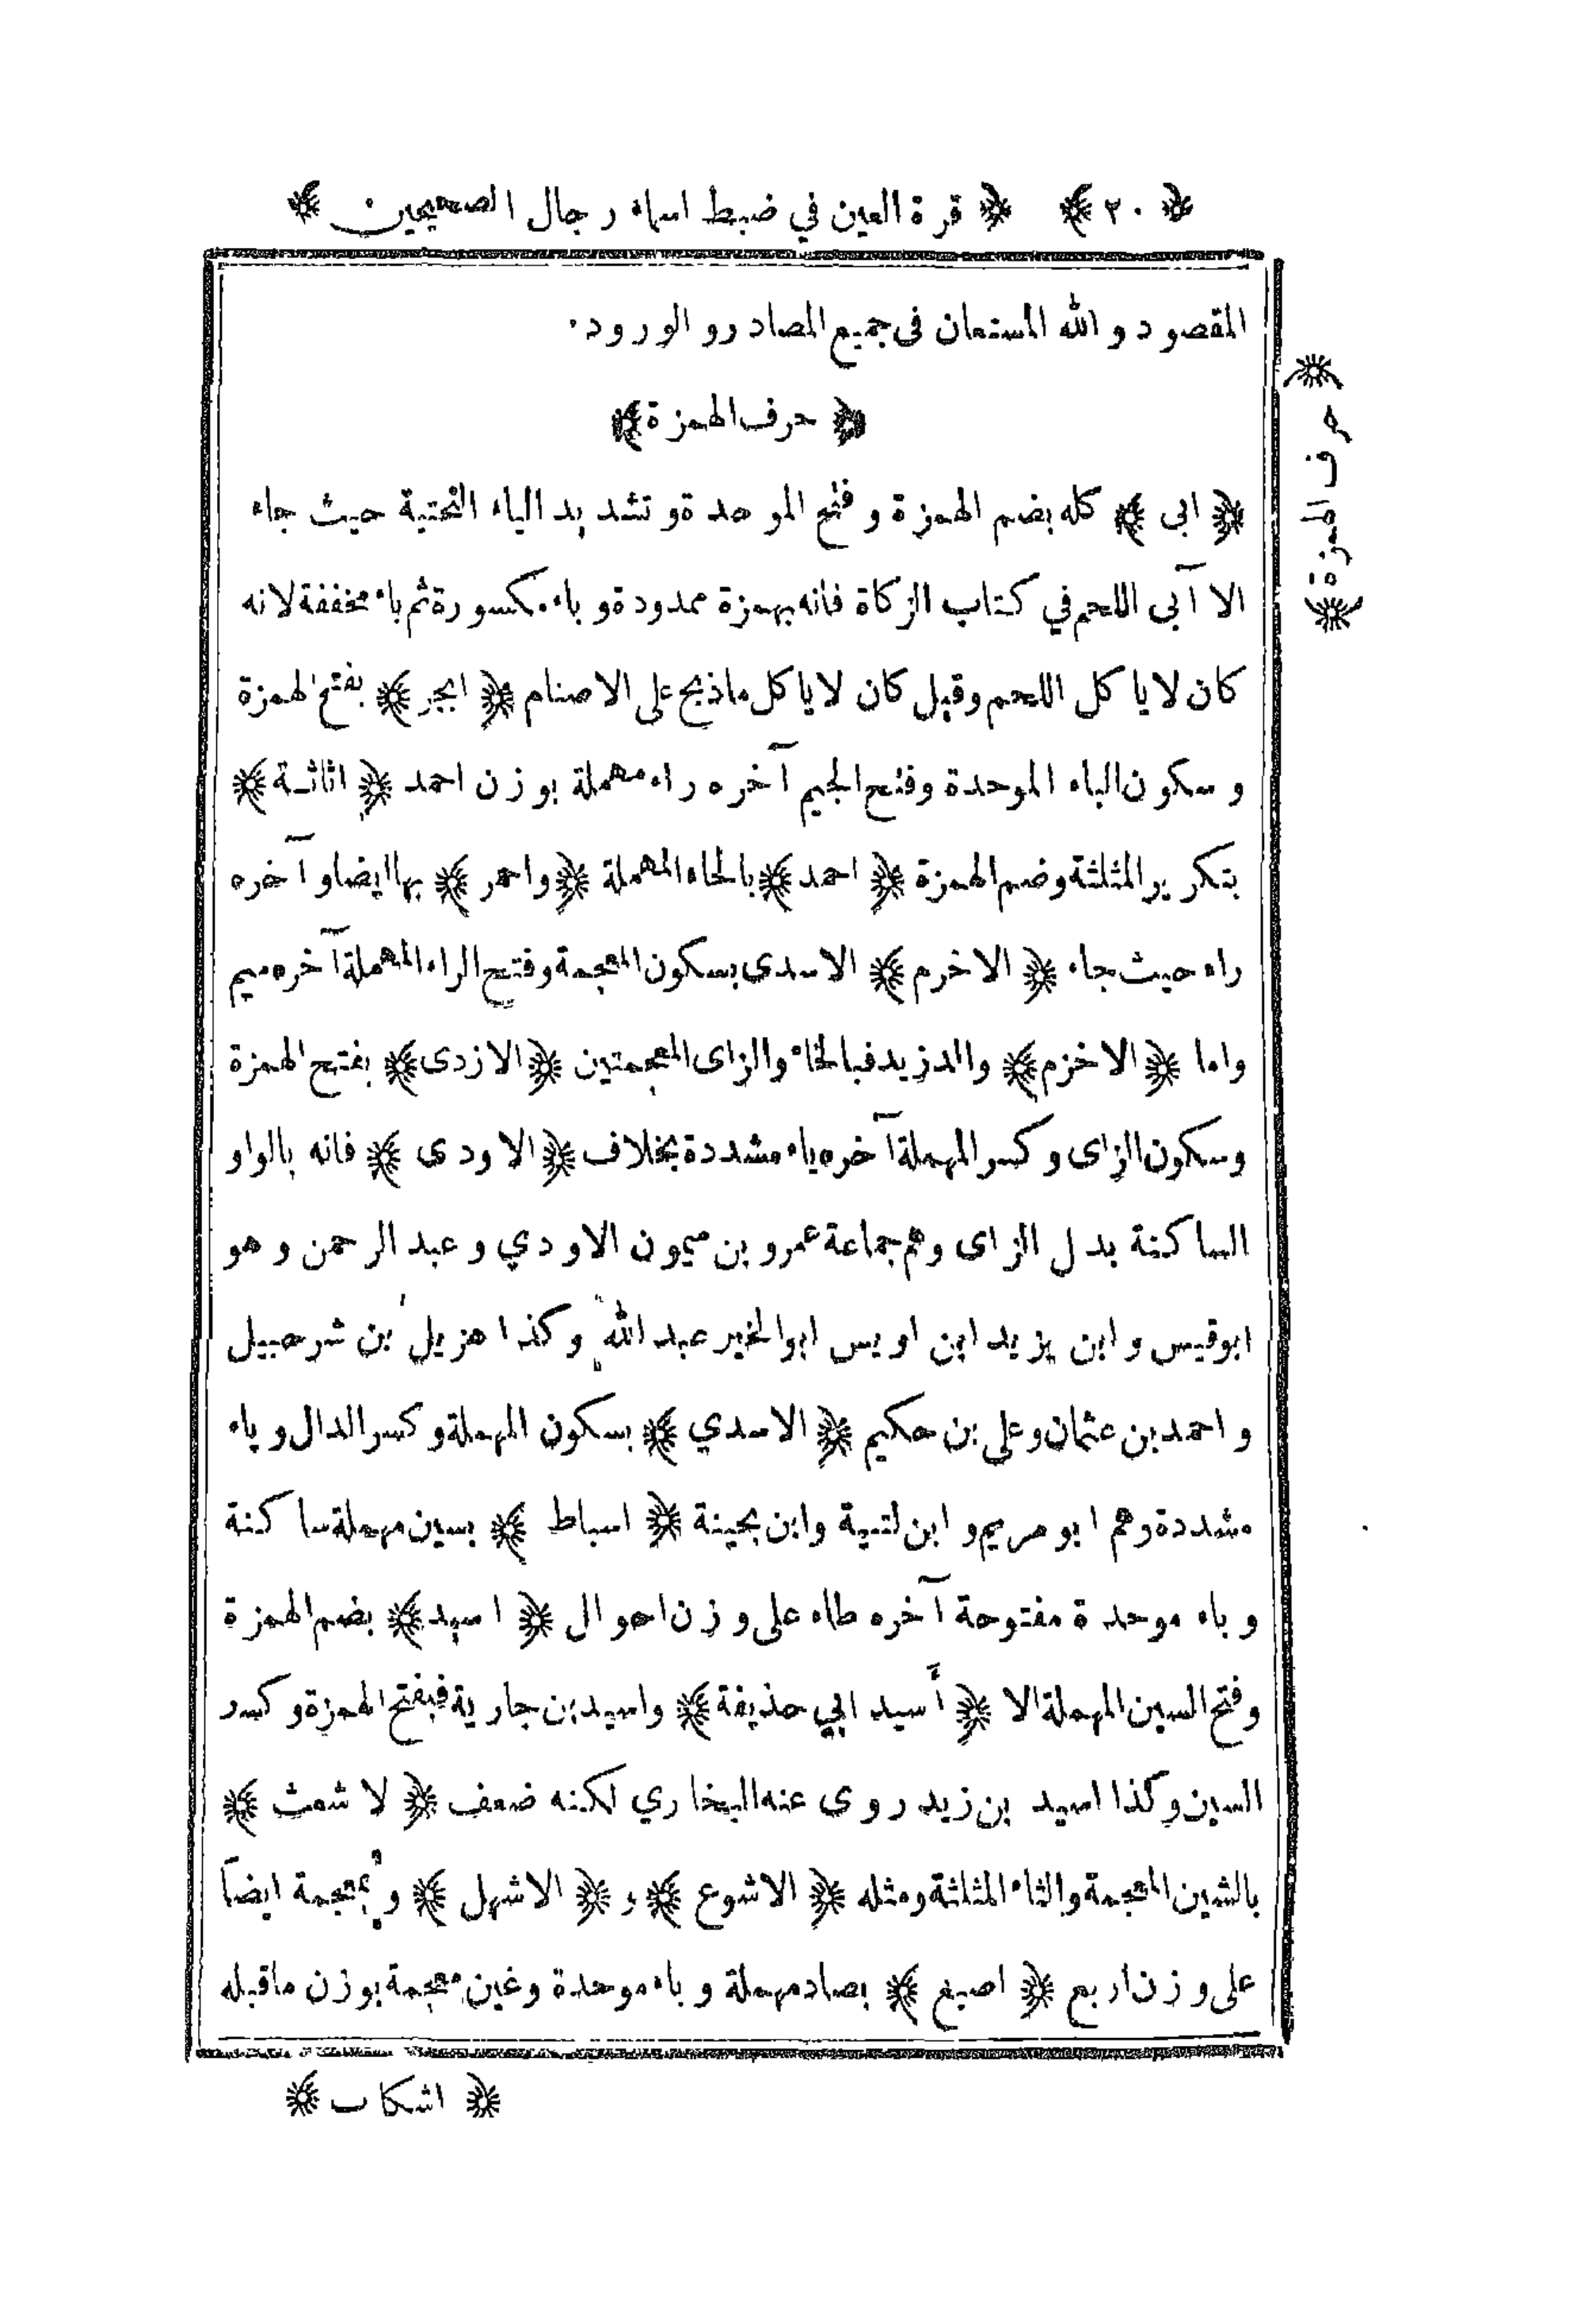 ﴿٢٠﴾ ﴿ قرة العين في ضبط اسماء رجال الصحيحين ﴾
المقصود والله المستعان فى جميع المصادر والورود٠
﴿ حرف الهمزة ﴾
﴿ حرف الهمزة ﴾
﴿ ابى ﴾ كله بضم الهمزة وفتح الموحدة وتشديد الياء التحتية حيث جاء
الا آبى اللحم في كتاب الزكاة فانه بهمزة ممدودة وباء مكسورة ثم باء مخففة لانه
كان لا ياكل اللحم وقيل كان لا ياكل ماذبح على الاصنام ﴿ ابجر ﴾ بفتح الهمزة
وسكون الباء الموحدة وفتح الجيم آخره راء مهملة بوزن احمد ﴿ اثاثة ﴾
بتكرير المثلثة وضم الهمزة ﴿ احمد ﴾ بالحاء المهملة ﴿ واحمر ﴾ بها ايضا وآخره
راء حيث جاء ﴿ الاخرم ﴾ الاسدى بسكون المعجمة وفتح الراء المهملة آخره ميم
واما ﴿ الاخزم ﴾ والد زيد فبالخاء والزاى المعجمتين ﴿ الازدى ﴾ بفتح الهمزة
وسكون الزاى وكسر المهملة آخره ياء مشددة بخلاف ﴿ الاودى ﴾ فانه بالواو
الساكنة بدل الزاى وهم جماعة عمرو بن ميمون الاودي وعبد الرحمن وهو
ابوقيس وابن يزيد ابن اويس ابوالخير عبد الله وكذا هزيل بن شرحبيل
واحمد بن عثمان وعلى بن حكيم ﴿ الاسدي ﴾ بسكون المهملة وكسر الدال وياء
مشددة وهم ابو مريم وابن لتبية وابن بحينة ﴿ اسباط ﴾ بسين مهملة ساكنة
وباء موحدة مفتوحة آخره طاء على وزن احوال ﴿ اسيد ﴾ بضم الهمزة
وفتح السين المهملة الا ﴿ أسيد ابي حذيفة ﴾ واسيد بن جارية فبفتح الهمزة وكسر
السين وكذا اسيد بن زيد روى عنه البخاري لكنه ضعف ﴿ لا شعث ﴾
بالشين المعجمة والثاء المثلثة ومثله ﴿ الاشوع ﴾ و ﴿ الاشهل ﴾ وبمعجمة ايضاً
على وزن اربع ﴿ اصبغ ﴾ بصاد مهملة وباء موحدة وغين معجمة بوزن ماقبله
﴿ اشكاب ﴾